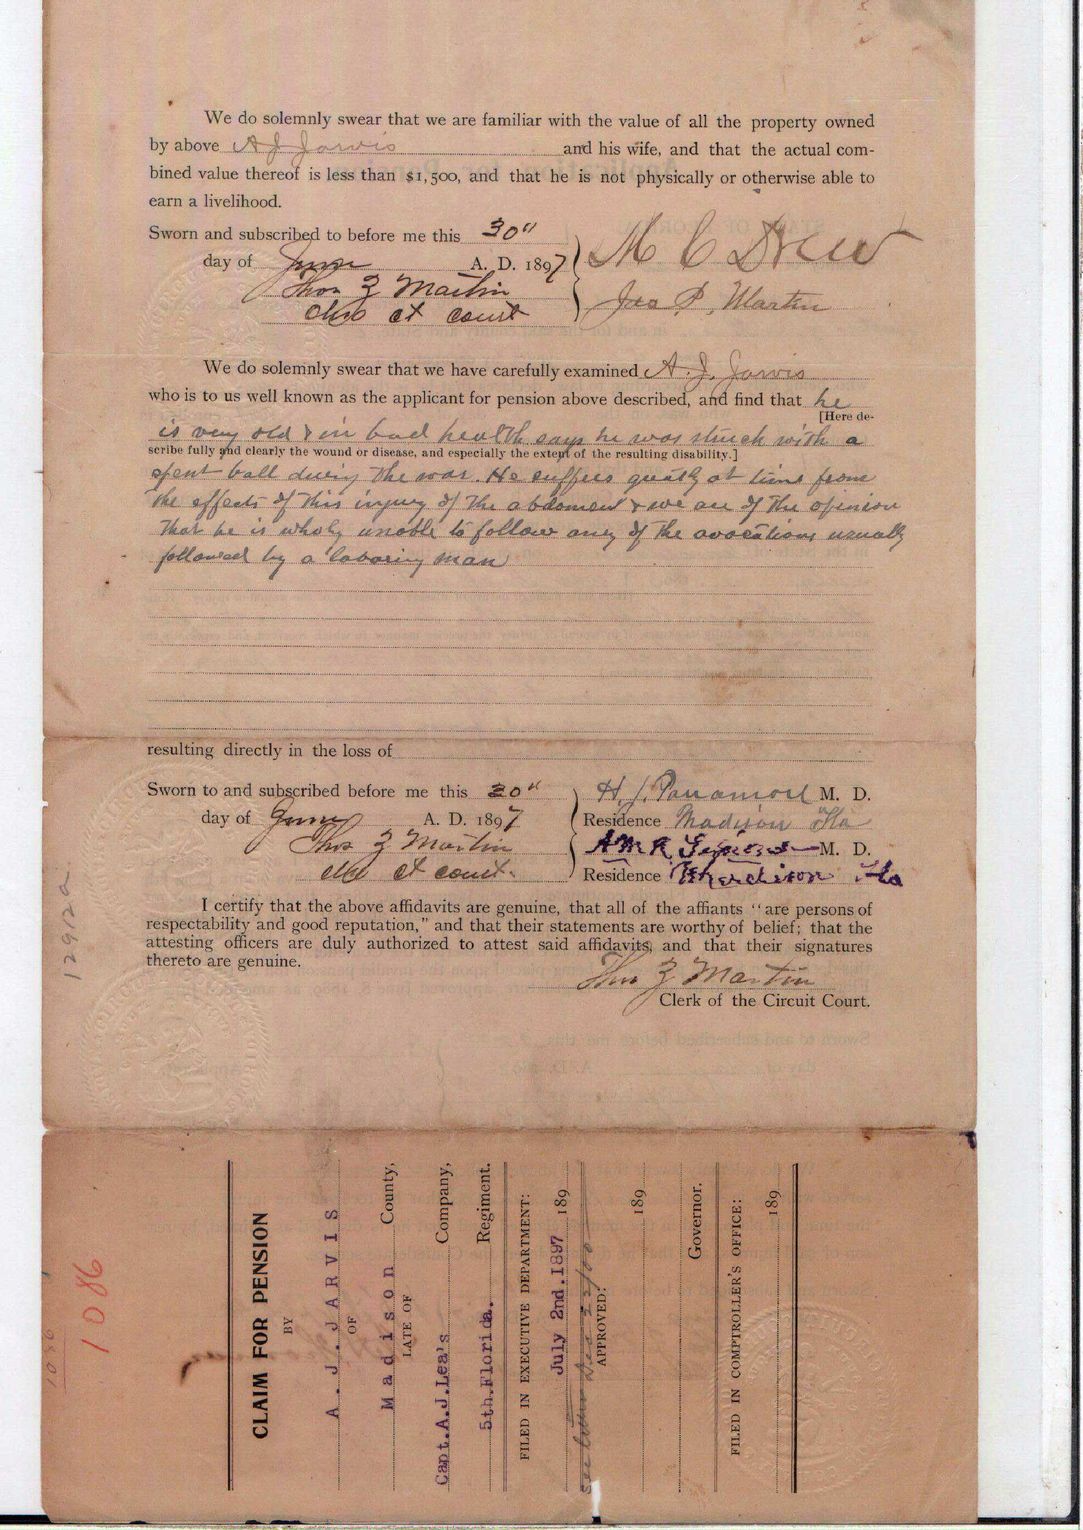 We do solemnly swear that we are familiar with the value of all the property owned
by above A J Jarvis and his wife, and that the actual com-
bined value thereof is less than $1,500, and that he is not physically or otherwise able to
earn a livelihood.
Sworn and subscribed to before me this 30"
day of June A. D. 1897
Thos Z Martin
Clk Ct Court
M C Drew
Jno P. Martin
We do solemnly swear that we have carefully examined A. J. Jarvis
who is to us well known as the applicant for pension above described, and find that he
[Here de-
is very old & in bad health says he was struck with a
scribe fully and clearly the wound or disease, and especially the extent of the resulting disability.]
spent ball during the war. He suffers greatly at time from
the effects of this injury of the abdoment & we are of the opinion
that he is wholy unable to follow any of the avocations usually
followed by a laboring man
resulting directly in the loss of
Sworn to and subscribed before me this 30"
day of June A. D. 1897
Thos Z Martin
Clk Ct Court.
H. J. M. D.
Residence Madison Fla
M. D.
Residence Madison Fla
I certify that the above affidavits are genuine, that all of the affiants "are persons of
respectability and good reputation," and that their statements are worthy of belief; that the
attesting officers are duly authorized to attest said affidavits, and that their signatures
thereto are genuine.
Thos Z Martin
Clerk of the Circuit Court.
12912a
1086
1086
CLAIM FOR PENSION
BY
A. J. JARVIS
OF
Madison County,
LATE OF
Capt. A.J.Lea's Company,
5th.Florida. Regiment.
FILED IN EXECUTIVE DEPARTMENT:
July 2nd.1897 189
APPROVED:
189
Governor.
FILED IN COMPTROLLER'S OFFICE:
189